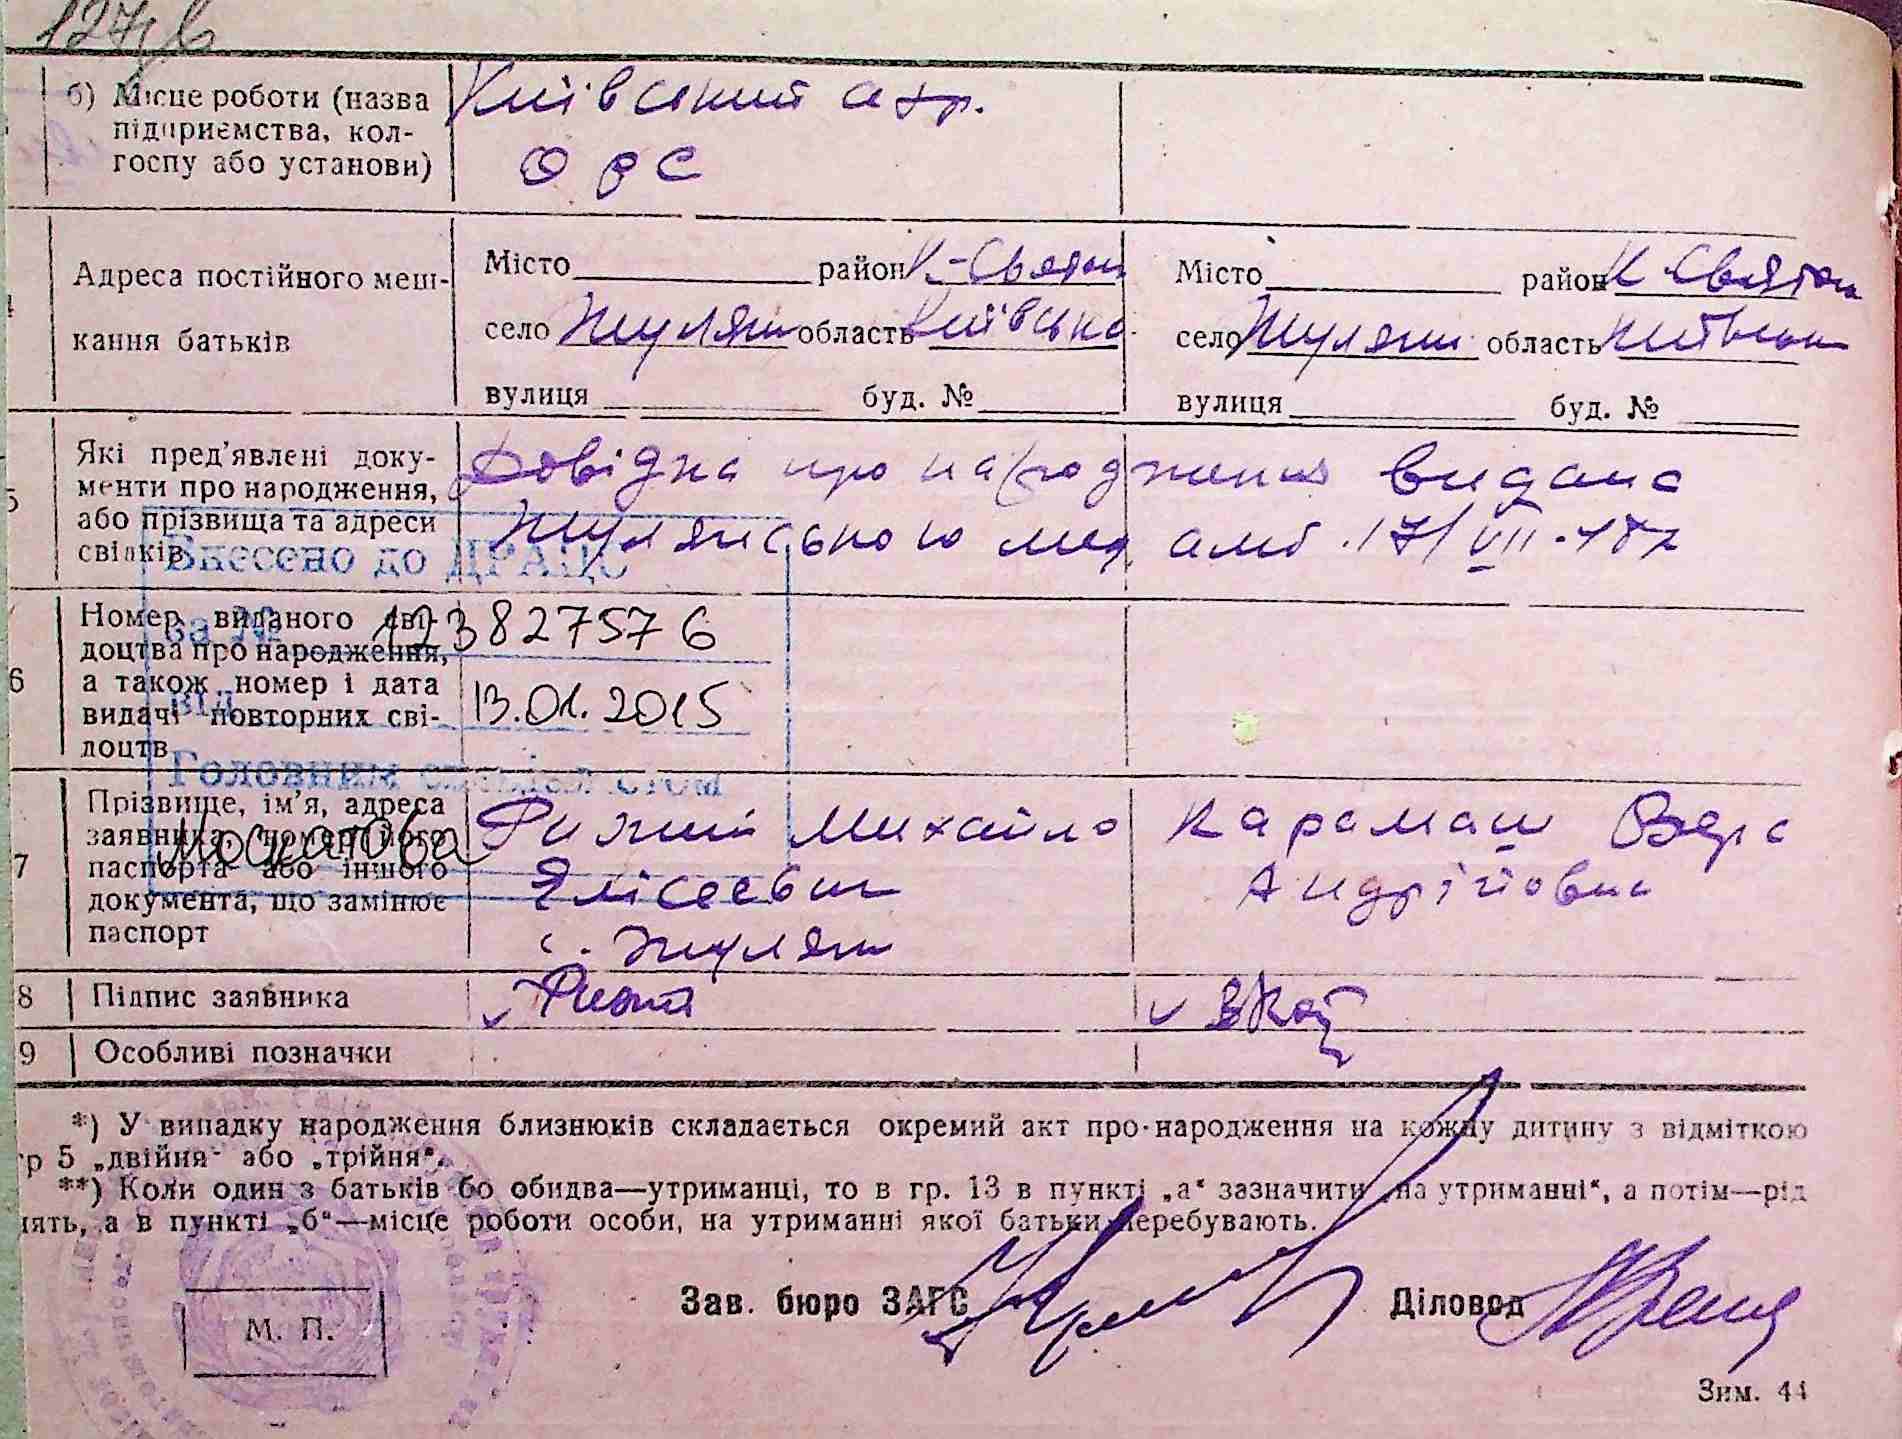 127
б) Місце роботи (назва підприємства, колгоспу або установи)
Київський
ОРС
Адреса постійного мешкання батьків
Місто район К-Святош
село Жуляни область Київська
вулиця буд. №
Місто район К-Святош
село Жуляни область Київська
вулиця буд. №
5 Які пред'явлені документи про народження, або прізвища та адреси свідків
Довідка про народження видана
Жулянською мед. амб. 17/VII
Внесено до ДРАЦС
6 Номер виданого свідоцтва про народження, а також номер і дата видачі повторних свідоцтв
за № 123827576
від 13.01.2015
Головним спеціалістом
7 Прізвище, ім'я, адреса заявника, номер його паспорта або іншого документа, що замінює паспорт
Рижий Михайло
Єлісеєвич
с. Жуляни
Карамаш Вера
Андріївна
8 Підпис заявника
9 Особливі позначки
*) У випадку народження близнюків складається окремий акт про народження на кожну дитину з відміткою
гр 5 „двійня" або „трійня".
**) Коли один з батьків бо обидва—утриманці, то в гр. 13 в пункті „а" зазначити „на утриманні", а потім—рід
нять, а в пункті „б"—місце роботи особи, на утриманні якої батьки перебувають.
Зав. бюро ЗАГС
Діловод
М. П.
Зим. 44